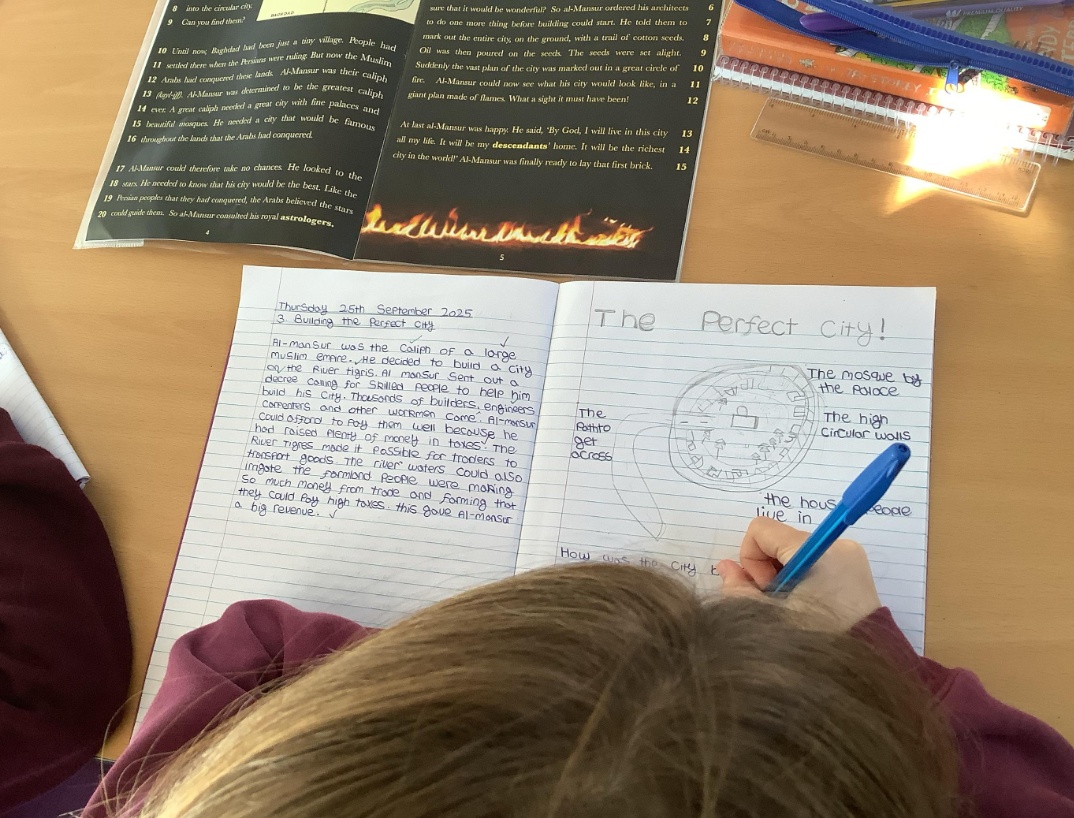 8 into the circular city.
9 Can you find them?
10 Until now, Baghdad had been just a tiny village. People had
11 settled there when the Persians were ruling. But now the Muslim
12 Arabs had conquered these lands. Al-Mansur was their caliph
13 (kay-liff). Al-Mansur was determined to be the greatest caliph
14 ever. A great caliph needed a great city with fine palaces and
15 beautiful mosques. He needed a city that would be famous
16 throughout the lands that the Arabs had conquered.
17 Al-Mansur could therefore take no chances. He looked to the
18 stars. He needed to know that his city would be the best. Like the
19 Persian peoples that they had conquered, the Arabs believed the stars
20 could guide them. So al-Mansur consulted his royal astrologers.
4
sure that it would be wonderful? So al-Mansur ordered his architects 6
to do one more thing before building could start. He told them to 7
mark out the entire city, on the ground, with a trail of cotton seeds. 8
Oil was then poured on the seeds. The seeds were set alight. 9
Suddenly the vast plan of the city was marked out in a great circle of 10
fire. Al-Mansur could now see what his city would look like, in a 11
giant plan made of flames. What a sight it must have been! 12
At last al-Mansur was happy. He said, 'By God, I will live in this city 13
all my life. It will be my descendants' home. It will be the richest 14
city in the world!' Al-Mansur was finally ready to lay that first brick. 15
5
Thursday 25th September 2025
3 Building the Perfect City
Al-Mansur was the Caliph of a large
muslim empire. He decided to build a City
on the River tigris. Al mansur Sent out a
decree Calling for Skilled People to help him
build his City. Thousands of builders, engineers
Carpenters and other workmen Came. Al-mansur
Could afford to Pay them well because he
had raised Plenty of money in taxes. The
River Tigres made it Possible for traders to
transport goods. The river waters Could also
irrigate the farmland People were making
So much money from trade and farming that
they Could Pay high taxes. this gave Al-mansur
a big revenue.
The Perfect City!
The mosque by
the Palace
The high
Circular walls
The
Pathto
get
across
the people
live in
How was the City